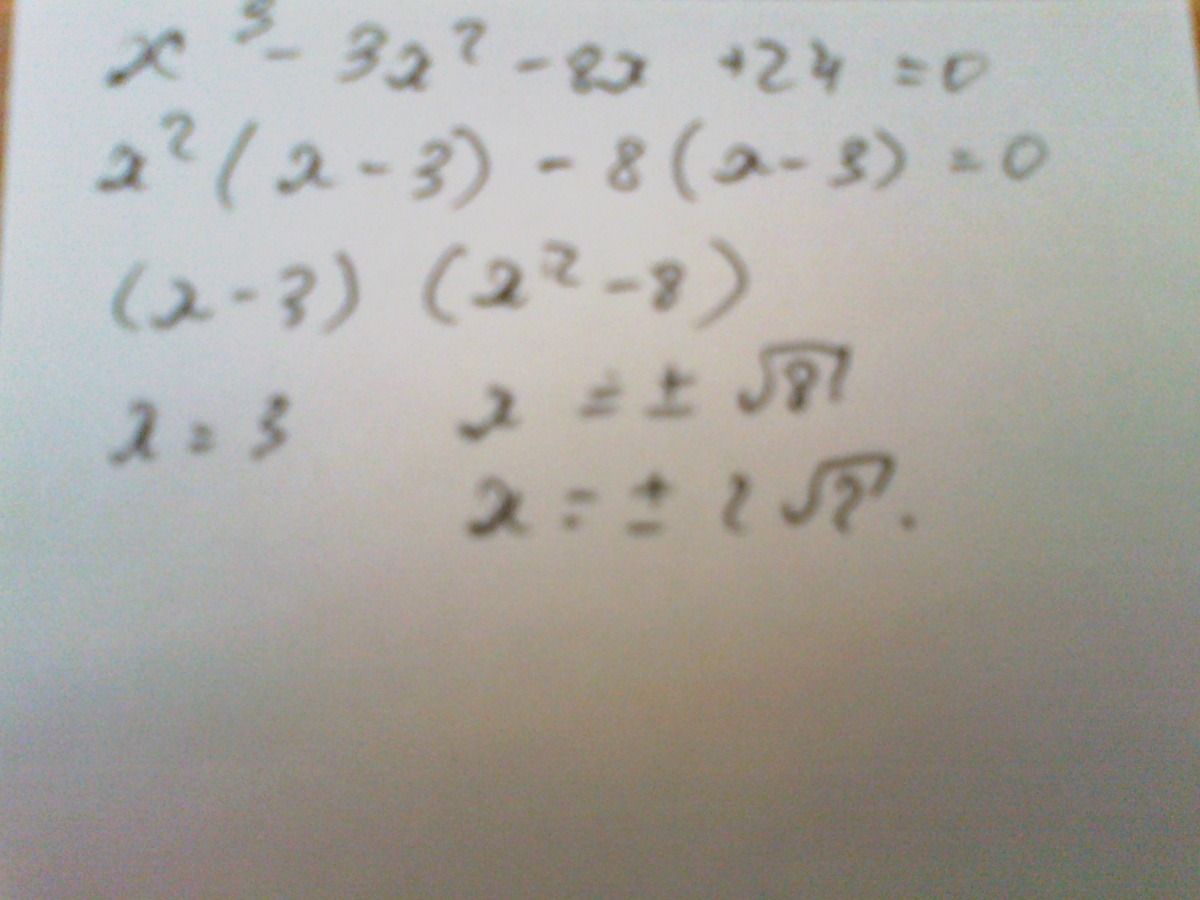 x³ - 3x² - 8x + 24 = 0
x² (x - 3) - 8 (x - 3) = 0
(x - 3) (x² - 8)
x = 3 x = ± √8
x = ± 2√2.